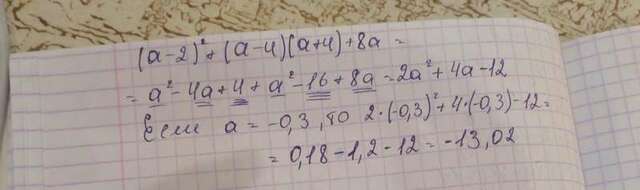 (a-2)²+(a-4)(a+4)+8a=
=a²-4a+4+a²-16+8a=2a²+4a-12
Если a=-0,3, то 2·(-0,3)²+4·(-0,3)-12=
=0,18-1,2-12=-13,02